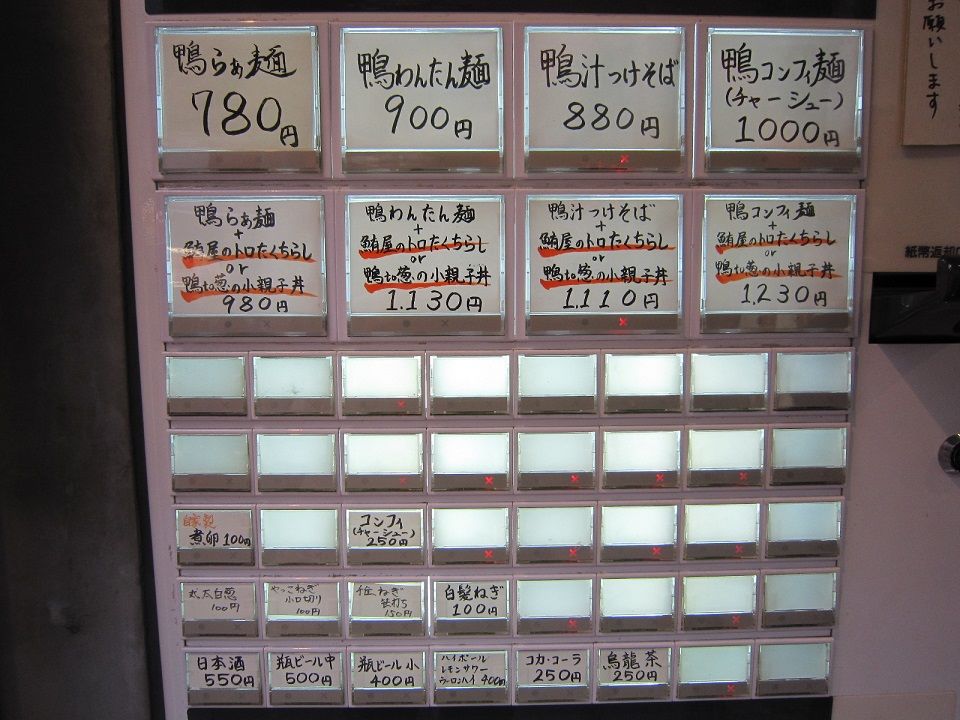 お願いします
鴨らぁ麺
780円
鴨わんたん麺
900円
鴨汁つけそば
880円
鴨コンフィ麺
(チャーシュー)
1000円
鴨らぁ麺
+
鮪屋のトロたくちらし
or
鴨to葱の小親子丼
980円
鴨わんたん麺
+
鮪屋のトロたくちらし
or
鴨to葱の小親子丼
1.130円
鴨汁つけそば
+
鮪屋のトロたくちらし
or
鴨to葱の小親子丼
1,110円
鴨コンフィ麺
+
鮪屋のトロたくちらし
or
鴨to葱の小親子丼
1,230円
紙幣返却
自家製
煮卵 100円
コンフィ
(チャーシュー)
250円
太太白葱
100円
やっこねぎ
小口切り
100円
千住ねぎ
笹打ち
150円
白髪ねぎ
100円
日本酒
550円
瓶ビール中
500円
瓶ビール小
400円
ハイボール
レモンサワー
ウーロンハイ 400円
コカ・コーラ
250円
烏龍茶
250円